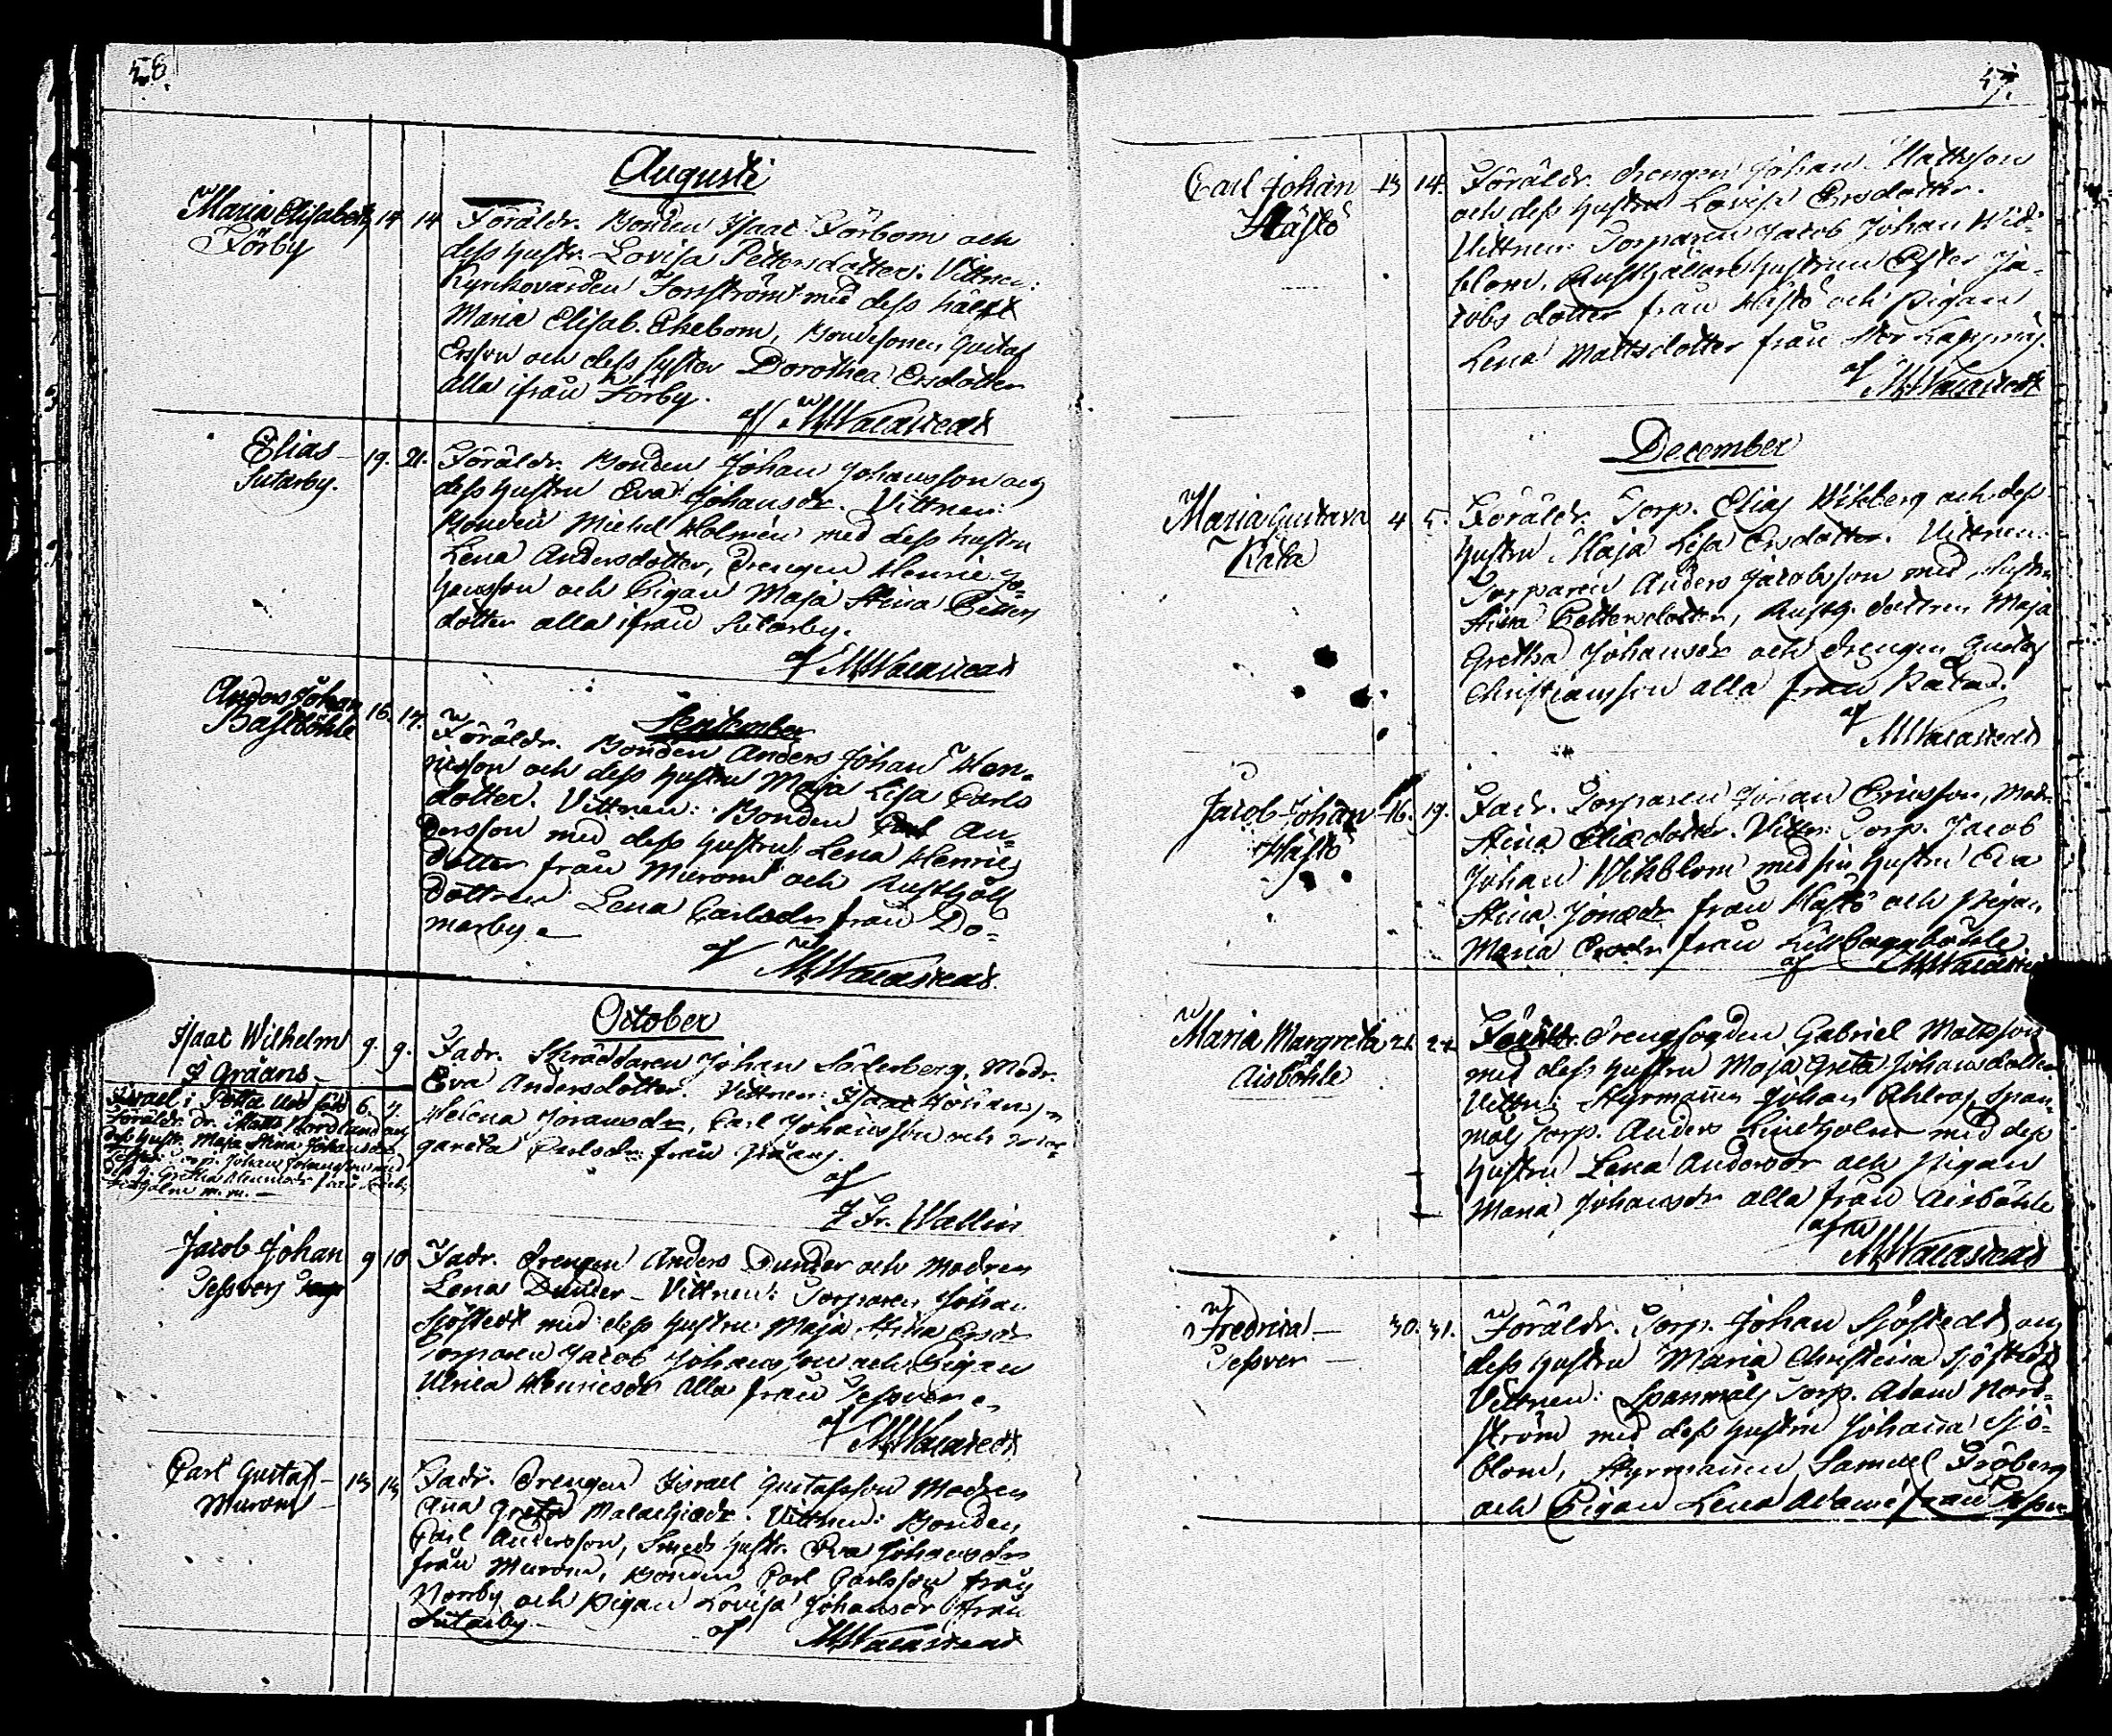 58.
Augusti
Maria Elisabeth 14 14
Förby
Föräldr. Bonden Isaac Förbom och
dess hustr. Lovisa Pettersdotter. Vittnen:
Kyrkovärden Forsström med dess hält
Maria Elisab. Ekebom, Bondesonen Gustaf
Ersson och dess syster Dorothea Ersdotter
alla ifrån Förby.
af
Elias 19. 21.
Sutarby.
Föräldr. Bonden Johan Johansson och
dess hustru Eva Johansdr. Vittnen:
Bonden Michel Holmén med dess hustru
Lena Andersdotter, drengen Henric Jo=
hansson och Pigan Maja Stina Petters
dotter alla ifrån Sutarby.
af
September
Anders Johan 16. 17.
Bastböhle
Föräldr. Bonden Anders Johan Hen=
ricsson och dess hustru Maja Lisa Carls
dotter. Vittnen: Bonden Carl An=
dersson med dess hustru Lena Henrics
dotter från Murom och Rusthåll
dottren Lena Carlsdr från Do=
marby.
af
October
Isaac Wilhelm 9. 9.
Gråans
Fadr. Skräddaren Johan Söderberg, Modr.
Eva Andersdotter. Vittnen: Isaac Johanss
Helena Joransdr, Carl Johansson och Mar=
gareta Carlsdr från Gråans.
af
J Fr. Wallin
Israel i 6. 7.
Föräldr. Dr. Matts Nordlund och
dess hustr. Maja Stina Johansdr
Torp. Johan Johansson med
Gretha
holm m. m.
Jacob Johan 9 10
Pessvers
Fadr. drengen Anders Dunder och Modren
Lena Dunder Vittnen: Torparen Johan
Sjöstedt med dess hustru Maja Stina Ersdr
Torparen Jacob Johansson och Pigan
Ulrica Henricsdr alla från Pessver
af
Carl Gustaf 13 13
Murom
Fadr. Drengen Israel Gustafsson Modren
Anna Greta Malachiedr. Vittnen: Bonden
Carl Andersson, Smeds hustr. Eva Johansdr
från Murom, Bonden Carl Carlsson från
Norrby och Pigan Lovisa Johansdr från
Sutarby.
af
Carl Johan 13 14.
Hästö
Föräldr. drengen Johan Mattsson
och dess hustru Lovisa Ersdotter.
Vittnen: Torparen Jacob Johan Wik=
blom, Rusthållare hustrun Ester Ja=
cobs dotter från Hästö och pigan
Lena Mattsdotter från Stor
af
December
Maria Gustava 4 5.
Råta
Föräldr. Torp. Elias Wikberg och dess
hustru Maja Lisa Ersdotter. Vittnen:
Torparen Anders Jacobsson med hustru
Stina Pettersdotter, Rusth. dottren Maja
Gretha Johansdr och drengen Gustaf
Christiansson alla från Råta.
af
Jacob Johan 16. 19.
Hästö
Fadr. Torparen Johan Ericsson, Modr.
Stina Eliedotter. Vittn: Torp. Jacob
Johan Wikblom med sin hustru Eva
Stina Jonædr från Hästö och Pigan
Maria Ersdr från Lill
af
Maria Margreta 21. 22.
Aisböhle
Föräldr. drengfogden Gabriel Mattsson
med dess hustru Maja Greta Johansdotter
Vittn: Styrmannen Johan Ahlroos, Span=
måls Torp. Anders Lindholm med dess
hustru Lena Andersdr och Pigan
Maria Johansdr alla från Aisböhle
af
Fredrica 30. 31.
Pessver
Föräldr. Torp. Johan Sjöstedt och
dess hustru Maria Christina Sjöstedt
Vittnen: Spanmåls Torp. Adam Nord=
ström med dess hustru Johanna Sjö=
blom, Styrmannen Samuel Fröberg
och Pigan Lena från